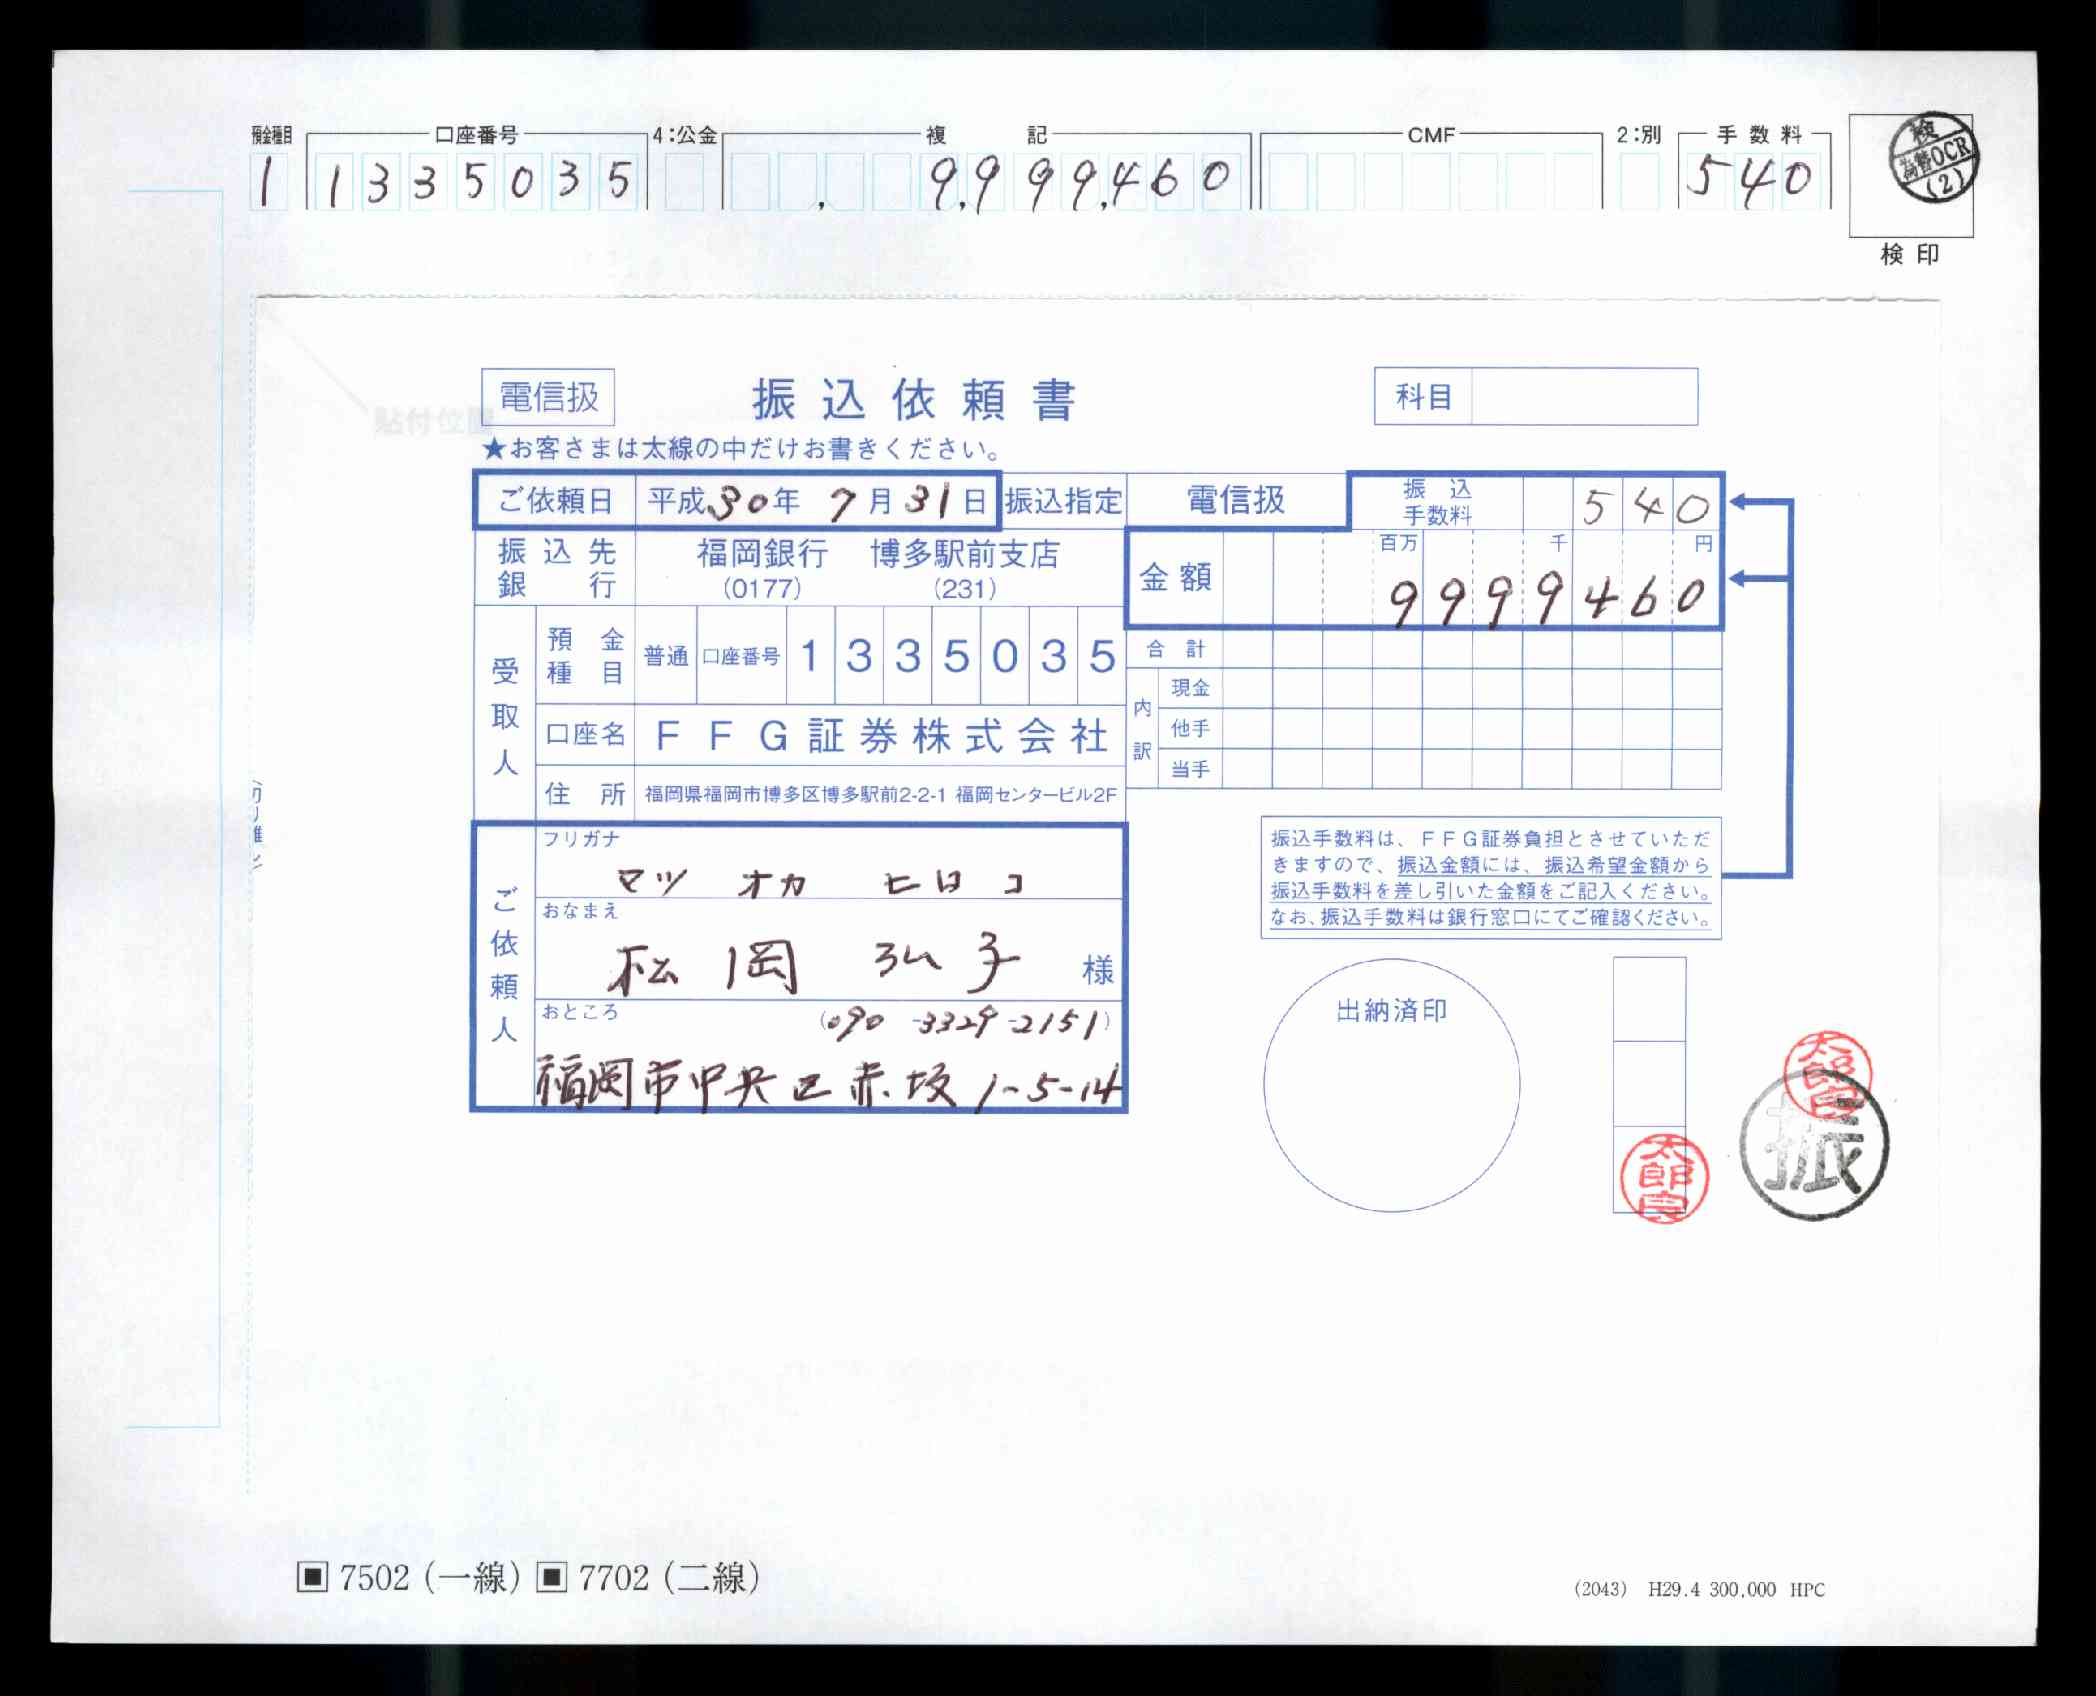 預金種目 口座番号 4:公金 複 記 CMF 2:別 手数料
1 1335035 9,999,460 540
検
OCR
(2)
検印
電信扱 振込依頼書 科目
貼付位置
★お客さまは太線の中だけお書きください。
ご依頼日 平成30年 7月31日 振込指定 電信扱 振込手数料 540
振込先銀行 福岡銀行 博多駅前支店
(0177) (231)
金額 百万 千 円
9999460
受取人 預金種目 普通 口座番号 1335035
合計
口座名 FFG証券株式会社
内訳 現金
他手
当手
住所 福岡県福岡市博多区博多駅前2-2-1 福岡センタービル2F
ご依頼人
フリガナ
マツ オカ ヒロ コ
おなまえ
松岡 弘子 様
おところ (090-3329-2151)
福岡市中央区赤坂1-5-14
振込手数料は、FFG証券負担とさせていただ
きますので、振込金額には、振込希望金額から
振込手数料を差し引いた金額をご記入ください。
なお、振込手数料は銀行窓口にてご確認ください。
出納済印
太郎良
振
太郎良
▣7502(一線)▣7702(二線)
(2043) H29.4 300,000 HPC